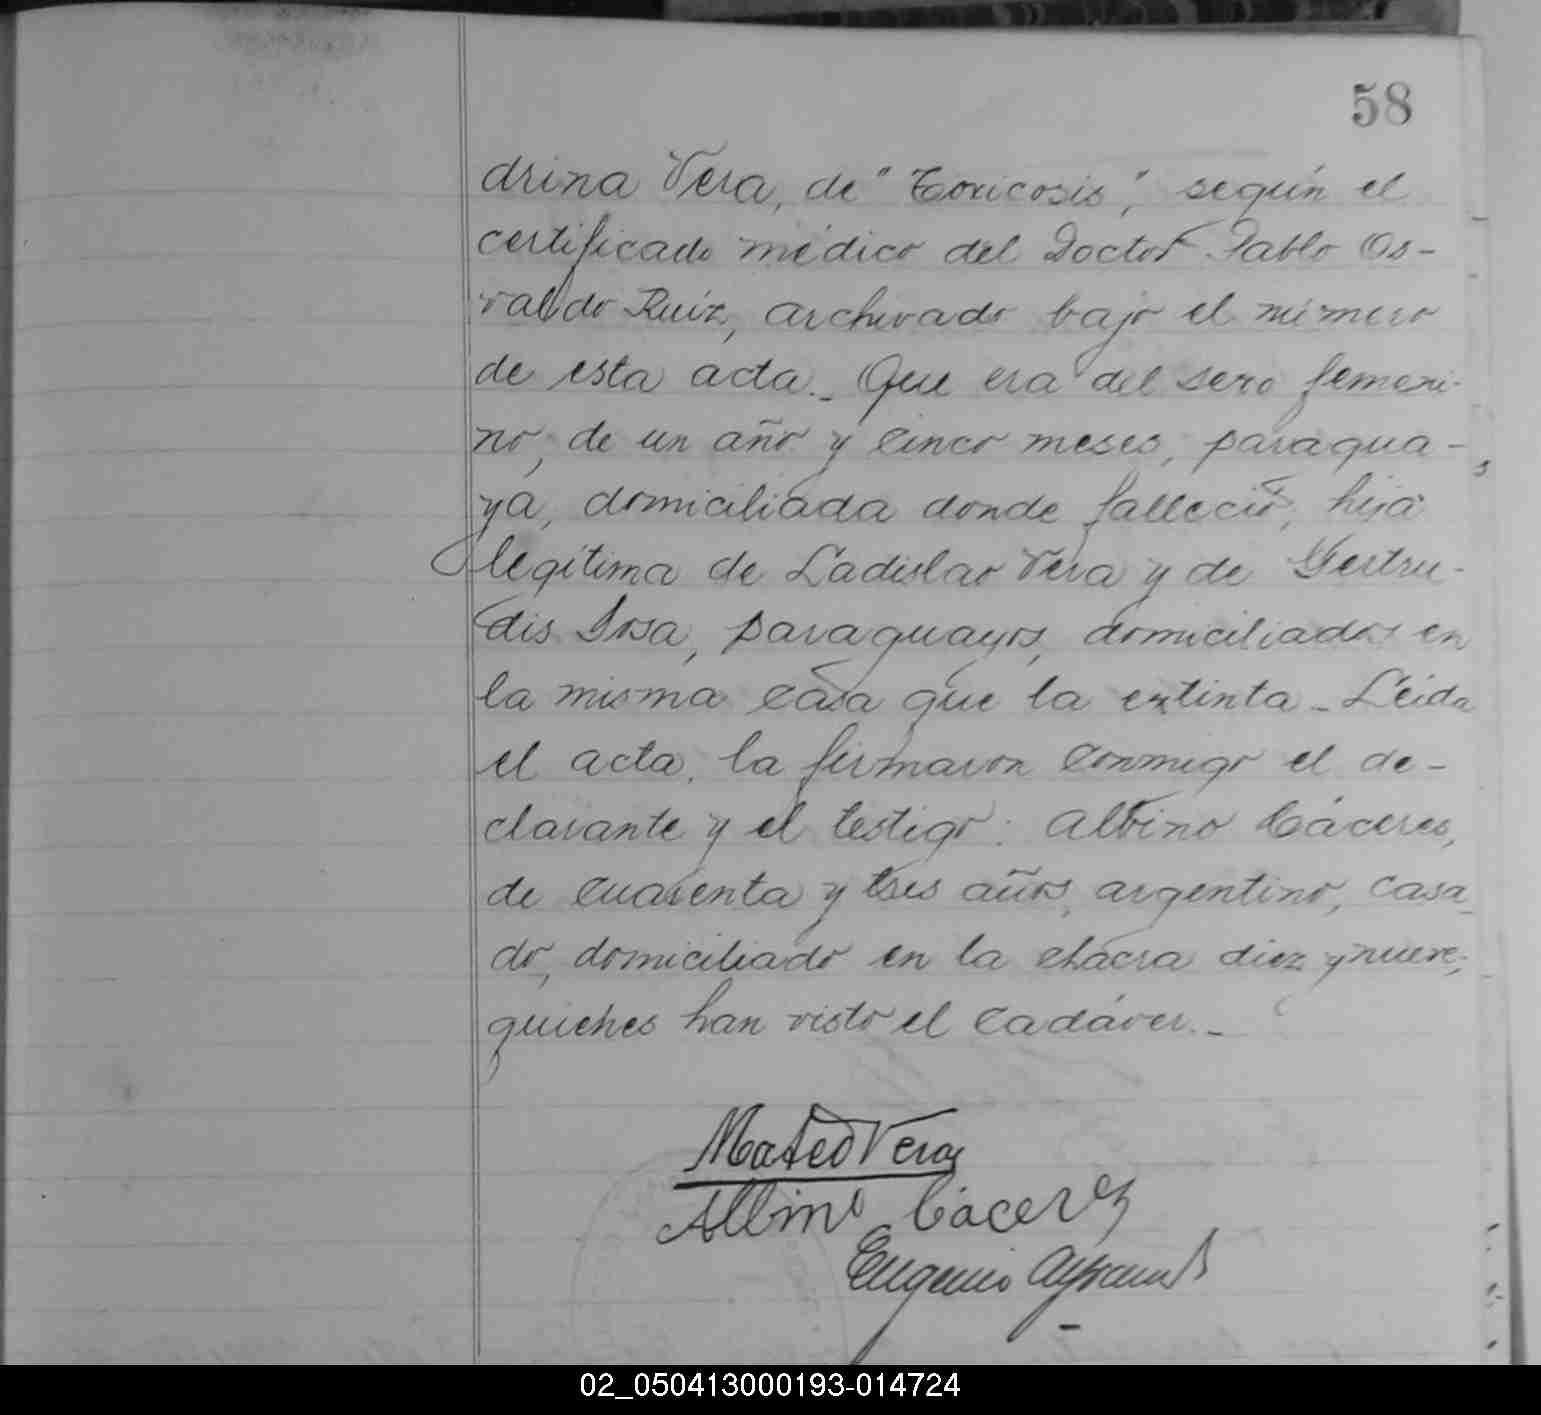 58
drina Vera, de "Toxicosis", según el
certificado médico del Doctor Pablo Os-
valdo Ruíz, archivado bajo el número
de esta acta._ Que era del sexo femeni-
no, de un año y cinco meses, paragua-
ya, domiciliada donde falleció, hija
legítima de Ladislao Vera y de Gertru-
dis Sosa, paraguayos, domiciliados en
la misma casa que la extinta_ Leída
el acta, la firmaron conmigo el de-
clarante y el testigo: Albino Cáceres,
de cuarenta y tres años, argentino, casa_
do, domiciliado en la chacra diez y nueve;
quienes han visto el cadáver._
Mateo Vera
Albino Cáceres
Eugenio
02_050413000193-014724